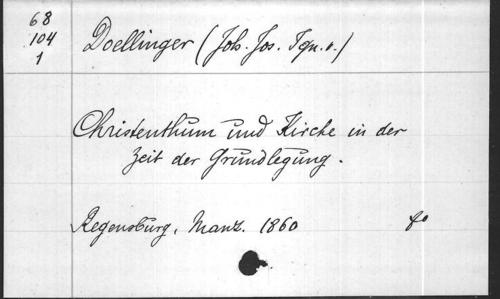 68
104
1
Doellinger (Joh. Jos. Ign. v.)
Christenthum und Kirche in der
Zeit der Grundlegung.
Regensburg, Manz. 1860